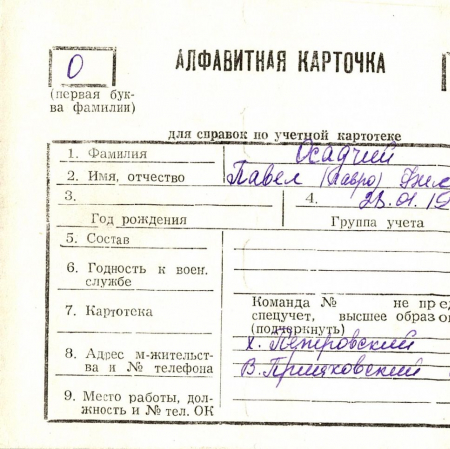 О
АЛФАВИТНАЯ КАРТОЧКА
(первая бук-
ва фамилии)
для справок по учетной картотеке
1. Фамилия Осадчий
2. Имя, отчество Павел (Павро)
3. 4. 28.01.19
Год рождения Группа учета
5. Состав
6. Годность к воен.
службе
7. Картотека
Команда № не пред
спецучет, высшее образо
(подчеркнуть)
8. Адрес м-жительст-
ва и № телефона
х. Петровский
В.
9. Место работы, дол-
жность и № тел. ОК